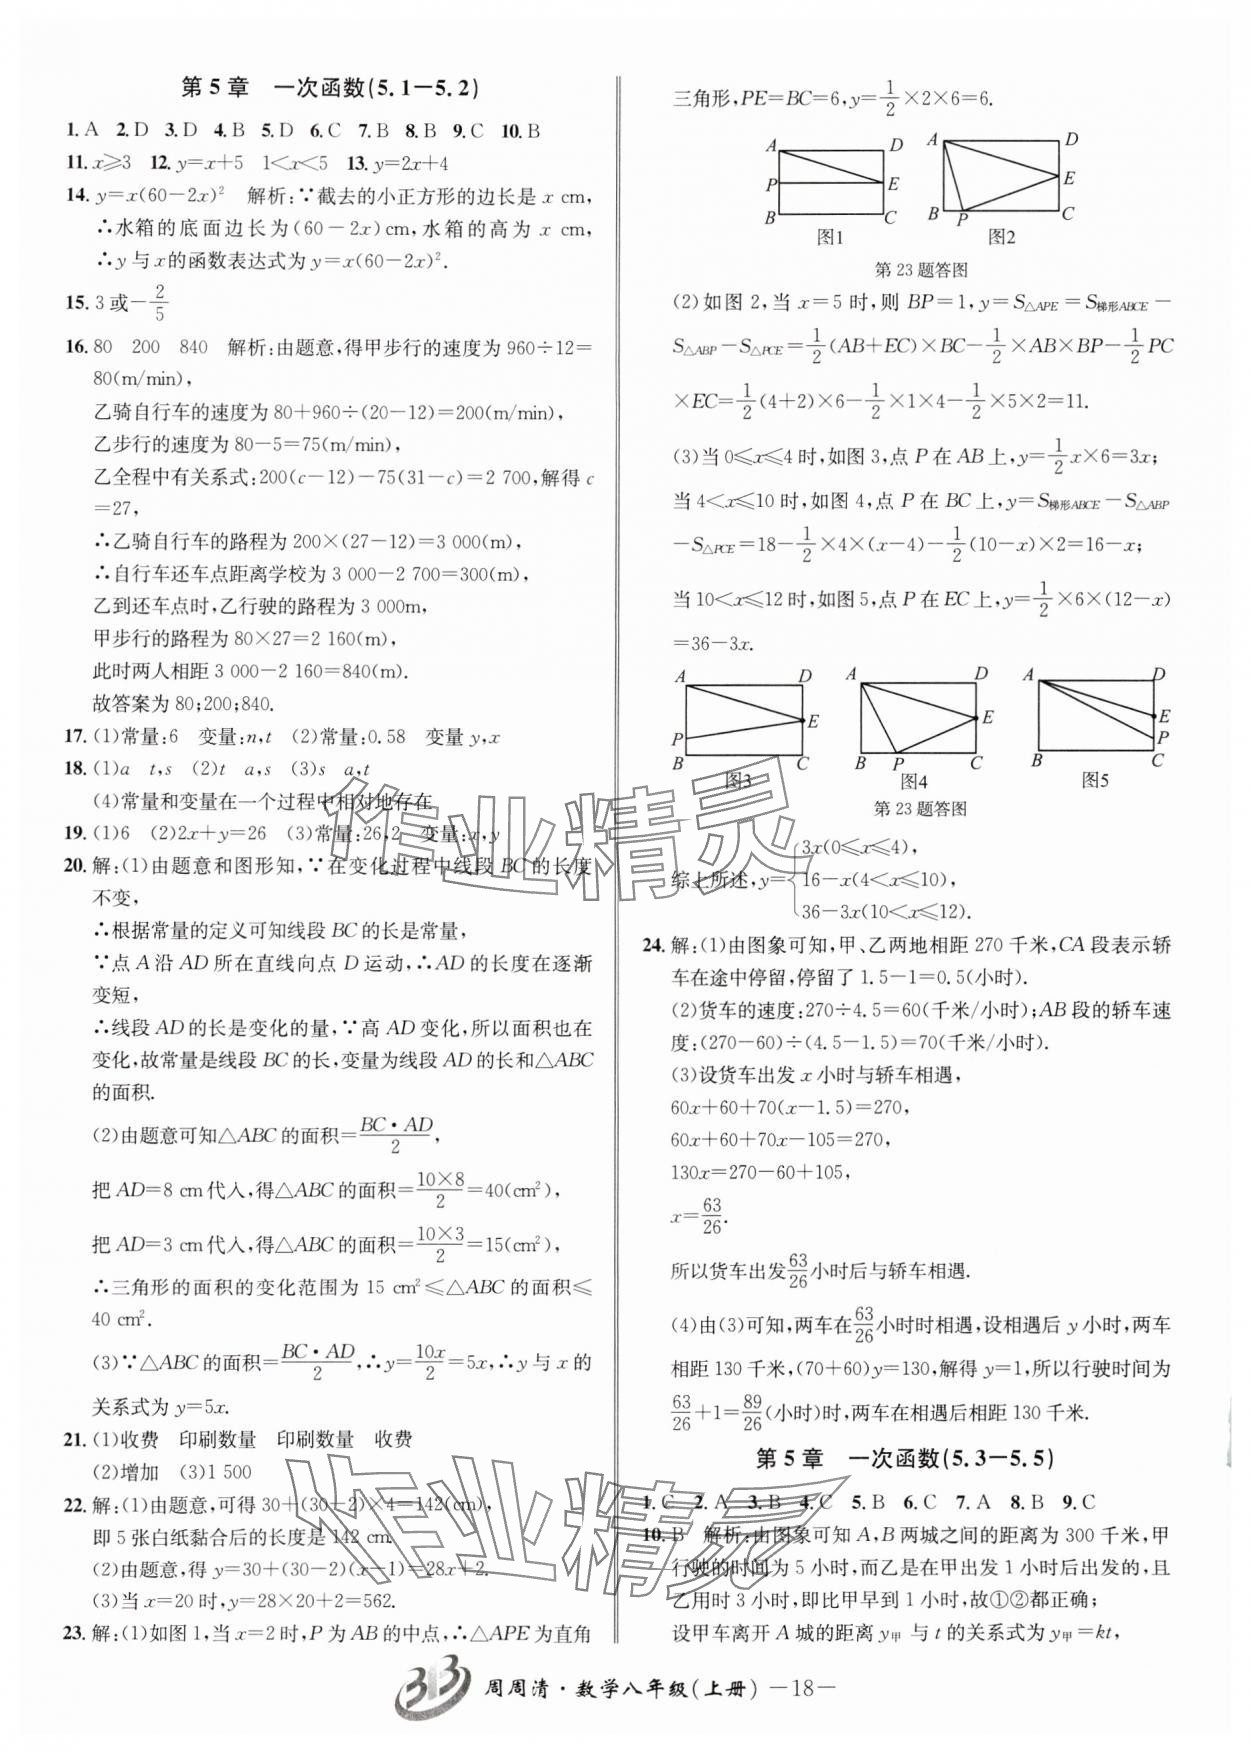 第 5 章　一次函数(5.1－5.2)
1. A　2. D　3. D　4. B　5. D　6. C　7. B　8. B　9. C　10. B
11. x≥3　12. y=x+5　1<x<5　13. y=2x+4
14. y=x(60-2x)²　解析:∵截去的小正方形的边长是 x cm,
∴水箱的底面边长为(60-2x)cm,水箱的高为 x cm,
∴y 与x的函数表达式为 y=x(60-2x)².
15. 3 或-2/5
16. 80　200　840　解析:由题意,得甲步行的速度为 960÷12=
80(m/min),
乙骑自行车的速度为 80+960÷(20-12)=200(m/min),
乙步行的速度为 80-5=75(m/min),
乙全程中有关系式:200(c-12)-75(31-c)=2 700,解得 c
=27,
∴乙骑自行车的路程为 200×(27-12)=3 000(m),
∴自行车还车点距离学校为 3 000-2 700=300(m),
乙到还车点时,乙行驶的路程为 3 000m,
甲步行的路程为 80×27=2 160(m),
此时两人相距 3 000-2 160=840(m).
故答案为 80;200;840.
17. (1)常量:6　变量:n,t　(2)常量:0.58　变量 y,x
18. (1)a　t,s　(2)t　a,s　(3)s　a,t
(4)常量和变量在一个过程中相对地存在
19. (1)6　(2)2x+y=26　(3)常量:26,2　变量:x,y
20. 解:(1)由题意和图形知,∵在变化过程中线段 BC 的长度
不变,
∴根据常量的定义可知线段 BC 的长是常量,
∵点 A 沿 AD 所在直线向点 D 运动,∴AD 的长度在逐渐
变短,
∴线段 AD 的长是变化的量,∵高 AD 变化,所以面积也在
变化,故常量是线段 BC 的长,变量为线段 AD 的长和△ABC
的面积.
(2)由题意可知△ABC 的面积=BC·AD/2,
把 AD=8 cm代入,得△ABC 的面积=10×8/2=40(cm²),
把 AD=3 cm代入,得△ABC 的面积=10×3/2=15(cm²),
∴三角形的面积的变化范围为 15 cm²≤△ABC 的面积≤
40 cm².
(3)∵△ABC 的面积=BC·AD/2,∴y=10x/2=5x,∴y 与 x 的
关系式为 y=5x.
21. (1)收费　印刷数量　印刷数量　收费
(2)增加　(3)1 500
22. 解:(1)由题意,可得 30+(30-2)×4=142(cm),
即 5 张白纸黏合后的长度是 142 cm.
(2)由题意,得 y=30+(30-2)(x-1)=28x+2.
(3)当 x=20 时,y=28×20+2=562.
23. 解:(1)如图 1,当 x=2 时,P 为 AB 的中点,∴△APE 为直角
三角形,PE=BC=6,y=1/2×2×6=6.
A D P E B C 图1
A D E B P C 图2
第 23 题答图
(2)如图 2,当 x=5 时,则 BP=1,y=S△APE=S梯形ABCE-
S△ABP-S△PCE=1/2(AB+EC)×BC-1/2×AB×BP-1/2PC
×EC=1/2(4+2)×6-1/2×1×4-1/2×5×2=11.
(3)当 0≤x≤4 时,如图 3,点 P 在 AB 上,y=1/2x×6=3x;
当 4<x≤10 时,如图 4,点 P 在 BC 上,y=S梯形ABCE-S△ABP
-S△PCE=18-1/2×4×(x-4)-1/2(10-x)×2=16-x;
当 10<x≤12 时,如图 5,点 P 在 EC 上,y=1/2×6×(12-x)
=36-3x.
A D E P B C 图3
A D E B P C 图4
A D E P B C 图5
第 23 题答图
综上所述,y={3x(0≤x≤4),
16-x(4<x≤10),
36-3x(10<x≤12).
24. 解:(1)由图象可知,甲、乙两地相距 270 千米,CA 段表示轿
车在途中停留,停留了 1.5-1=0.5(小时).
(2)货车的速度:270÷4.5=60(千米/小时);AB 段的轿车速
度:(270-60)÷(4.5-1.5)=70(千米/小时).
(3)设货车出发 x 小时与轿车相遇,
60x+60+70(x-1.5)=270,
60x+60+70x-105=270,
130x=270-60+105,
x=63/26.
所以货车出发63/26小时后与轿车相遇.
(4)由(3)可知,两车在63/26小时时相遇,设相遇后 y 小时,两车
相距 130 千米,(70+60)y=130,解得 y=1,所以行驶时间为
63/26+1=89/26(小时)时,两车在相遇后相距 130 千米.
第 5 章　一次函数(5.3－5.5)
1. C　2. A　3. B　4. C　5. B　6. C　7. A　8. B　9. C
10. B　解析:由图象可知 A,B 两城之间的距离为 300 千米,甲
行驶的时间为 5 小时,而乙是在甲出发 1 小时后出发的,且
乙用时 3 小时,即比甲早到 1 小时,故①②都正确;
设甲车离开 A 城的距离 y甲 与 t 的关系式为 y甲=kt,
周周清·数学八年级(上册)　—18—
作业精灵
作业精灵